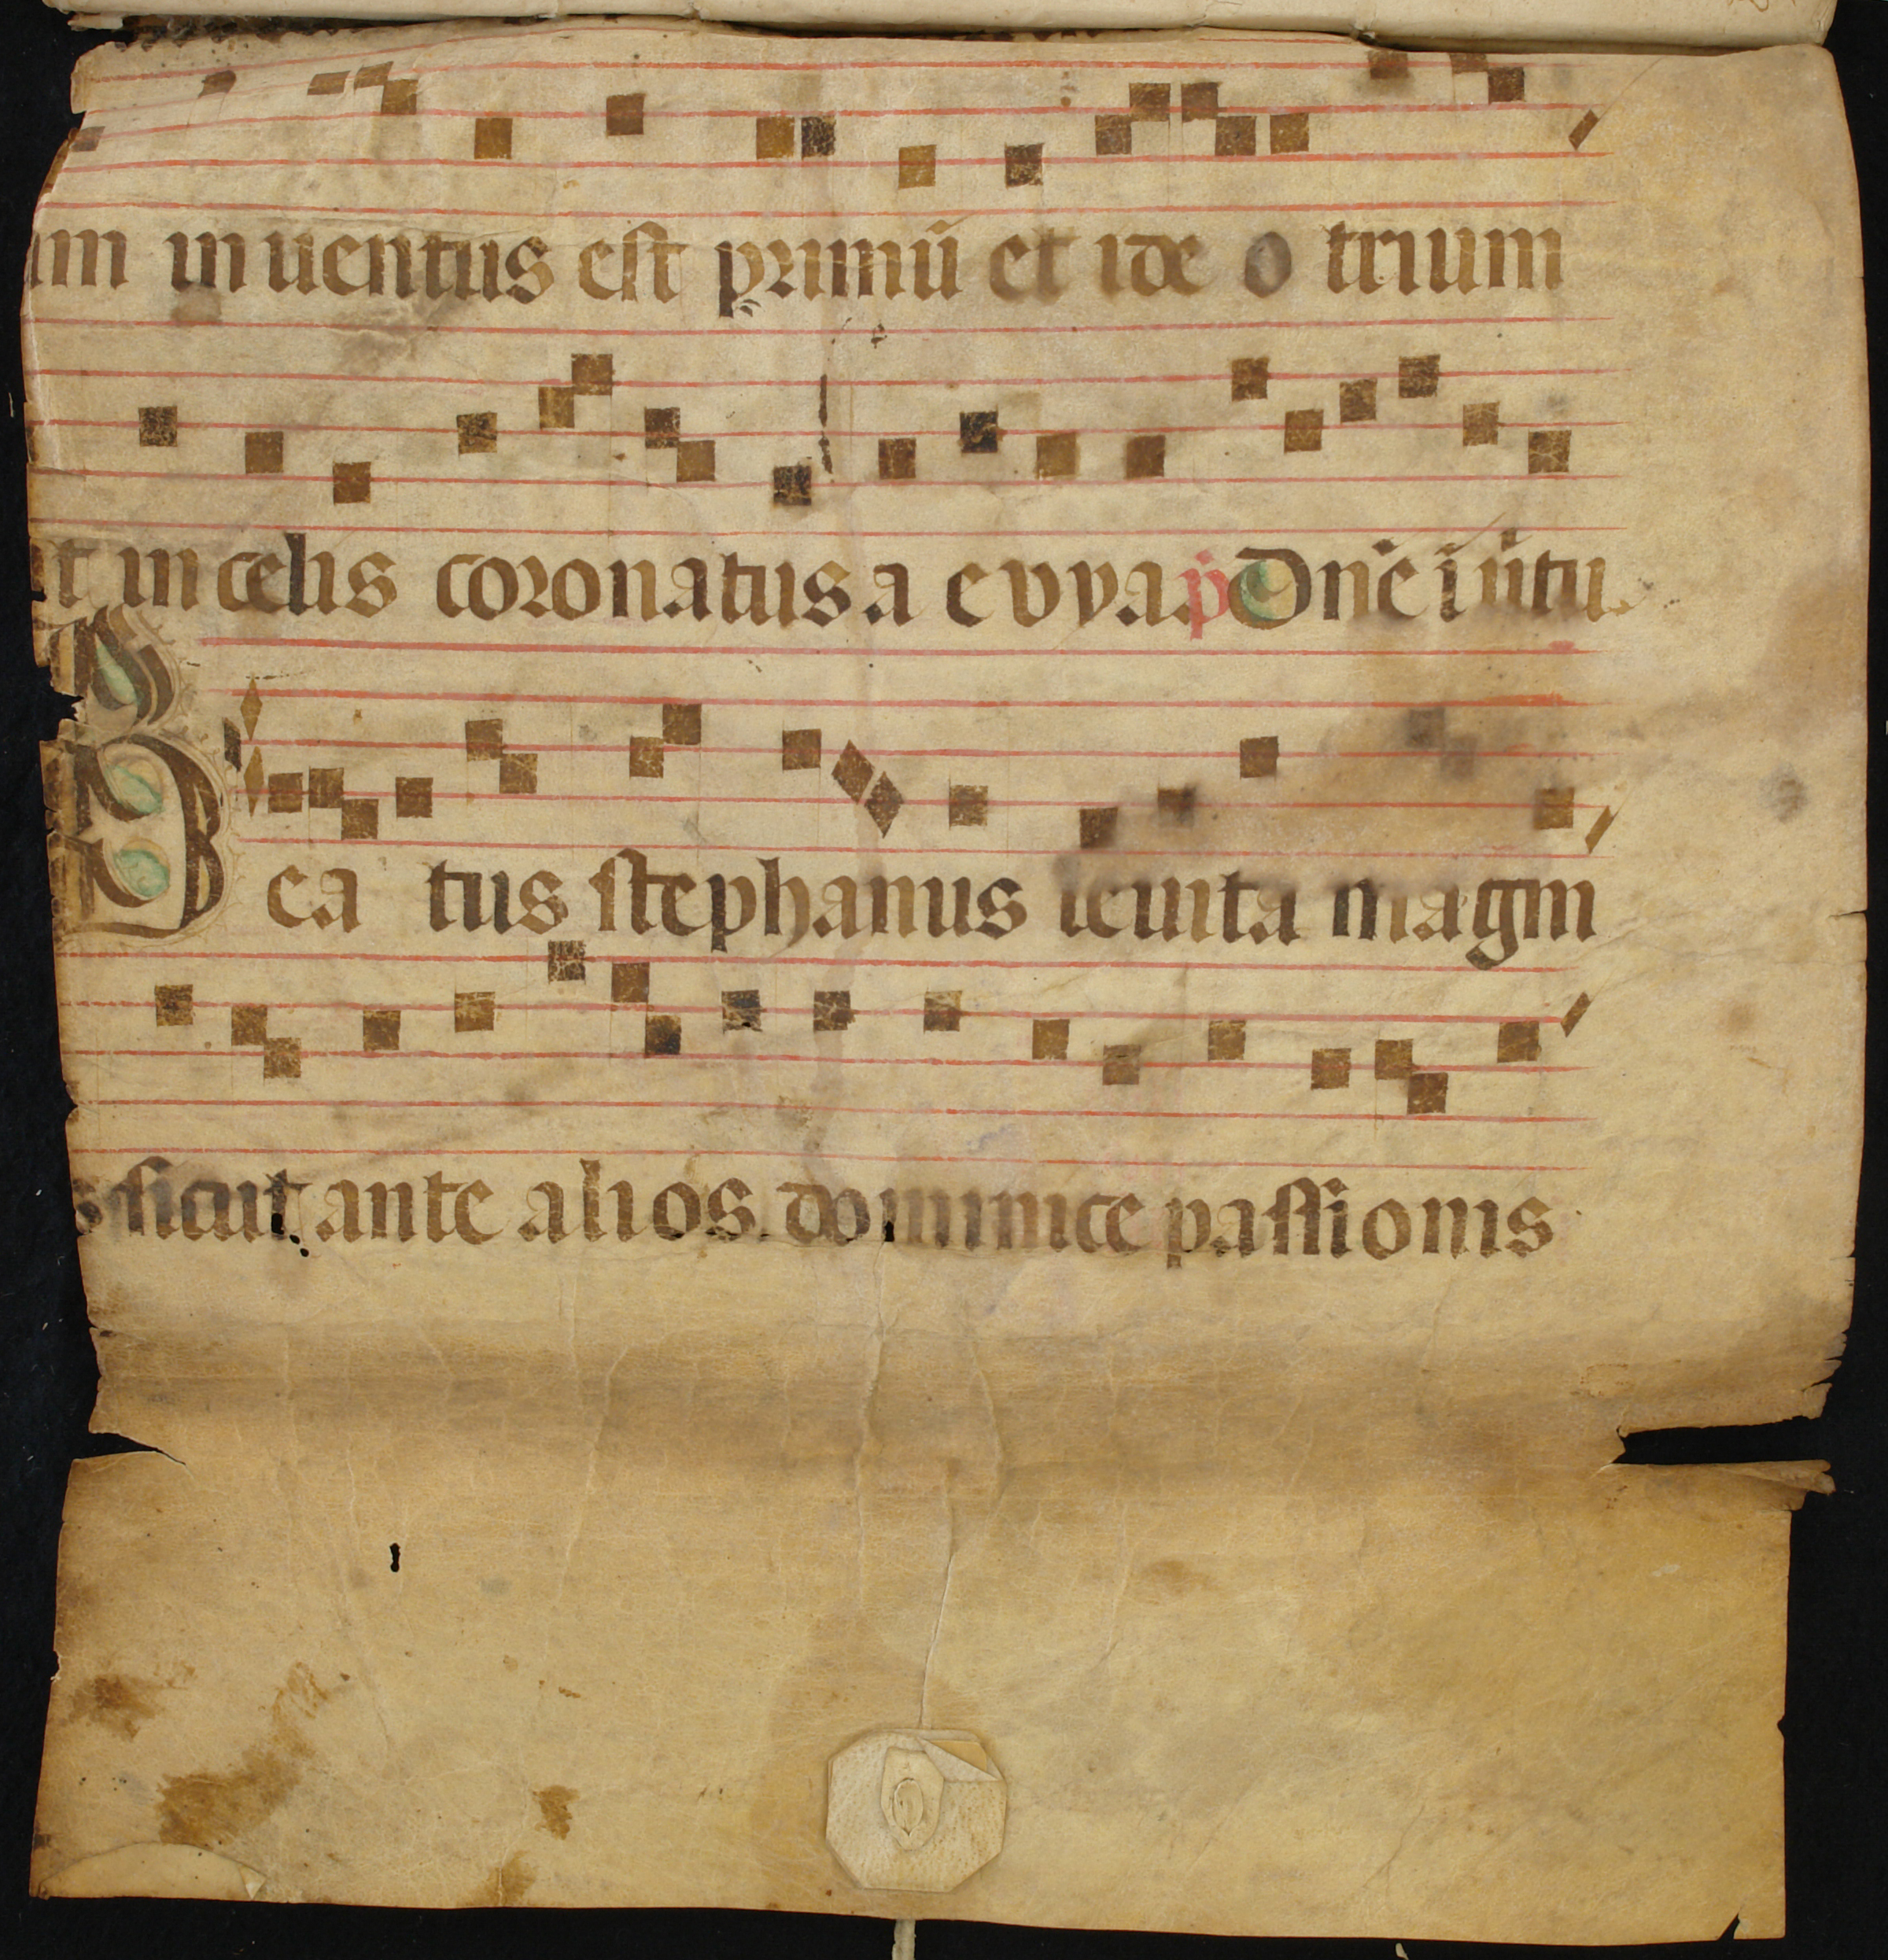 um inuentus est primū et ideo trium
t in celis coronatus a evvap. Dn̄e ī ūtu.
Beatus stephanus leuita magni
s sicut ante alios dominice passionis